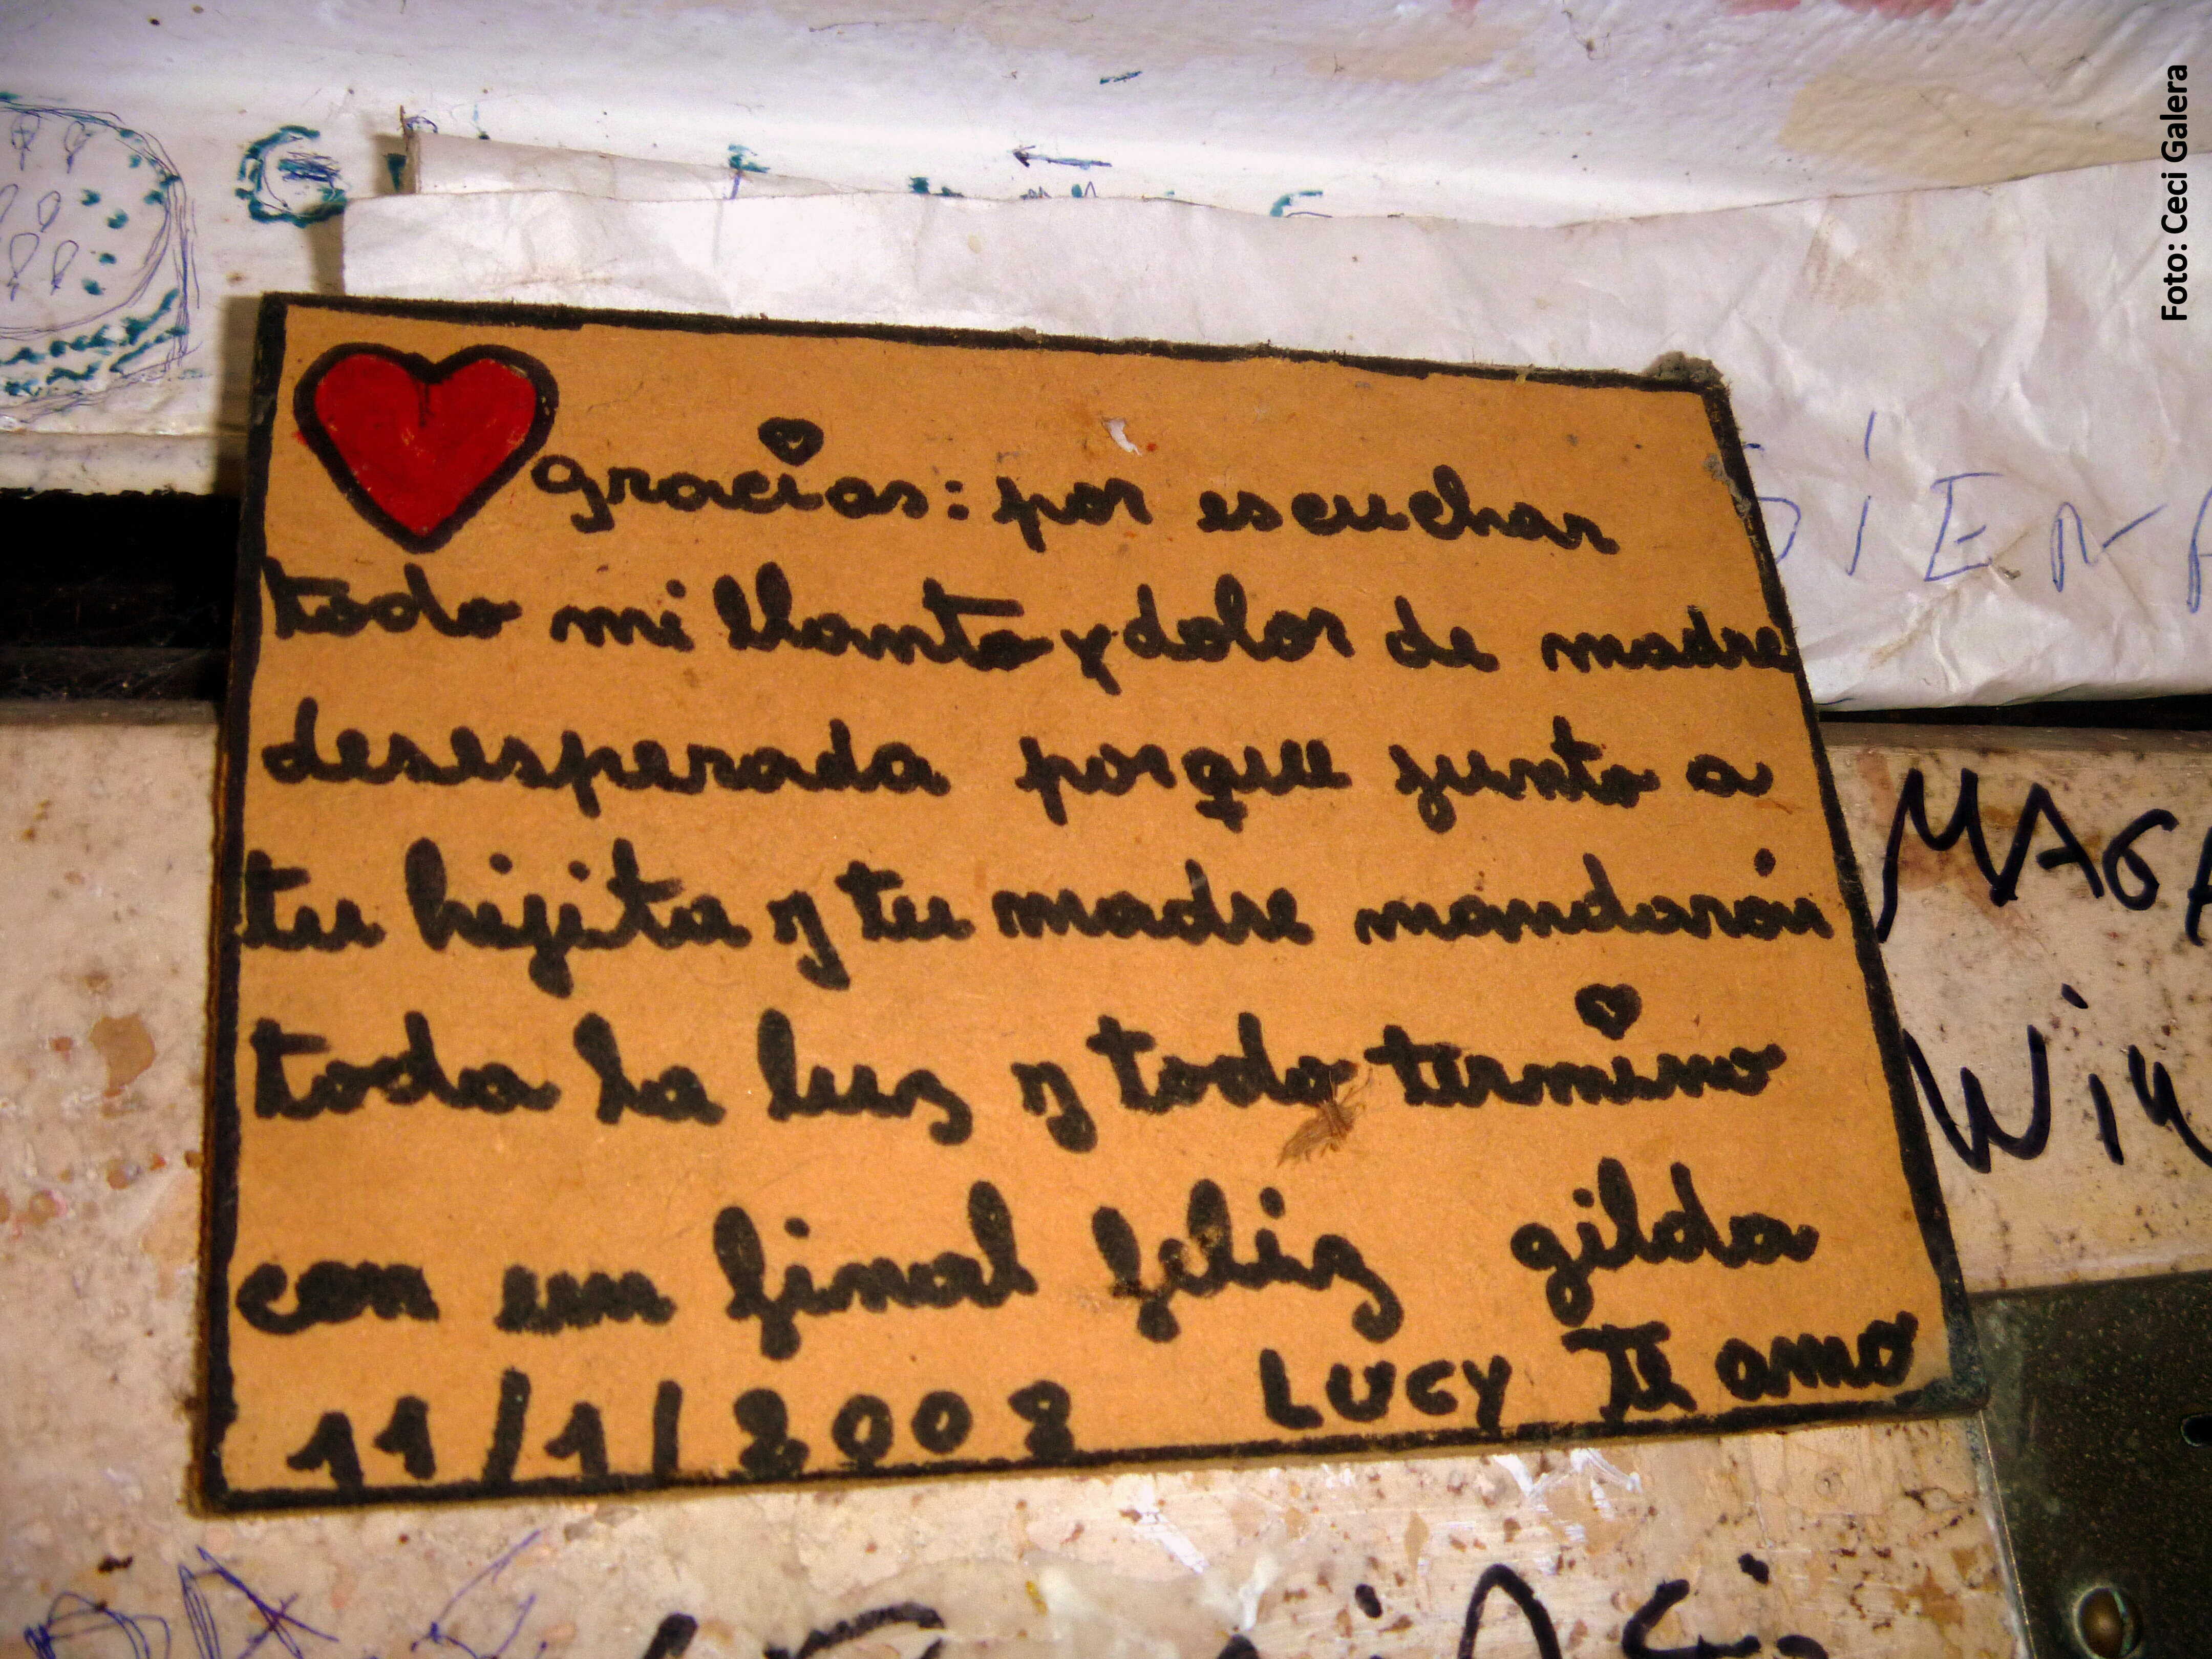 Foto: Ceci Galera
gracias: por escuchar
todo mi llanto y dolor de madre
desesperada porque junto a
tu hijita y tu madre mandarón
toda la luz y todo termino
con un final feliz gilda
11/1/2008 LUCY TE amo
MAGA
Wil